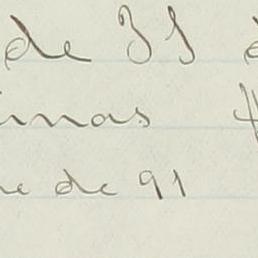 de 35 d
inas
re de 91